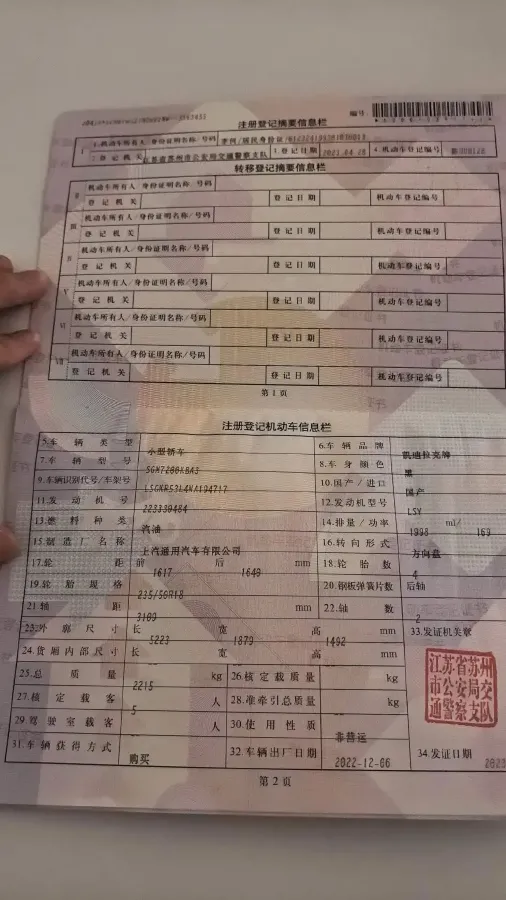 注册登记摘要信息栏
编号
I 1.机动车所有人/身份证明名称/号码 李何/居民身份证/
2.登记机关 江苏省苏州市公安局交通警察支队 3.登记日期 4.机动车登记编号
转移登记摘要信息栏
II 机动车所有人/身份证明名称/号码
登记机关 登记日期 机动车登记编号
III 机动车所有人/身份证明名称/号码
登记机关 登记日期 机动车登记编号
机动车所有人/身份证明名称/号码
登记机关 登记日期 机动车登记编号
V 机动车所有人/身份证明名称/号码
登记机关 登记日期 机动车登记编号
VI 机动车所有人/身份证明名称/号码
登记机关 登记日期 机动车登记编号
VII 机动车所有人/身份证明名称/号码
登记机关 登记日期 机动车登记编号
第1页
注册登记机动车信息栏
5.车辆类型 小型轿车 6.车辆品牌 凯迪拉克牌
7.车辆型号 8.车身颜色 黑
9.车辆识别代号/车架号 10.国产/进口 国产
11.发动机号 223330484 12.发动机型号 LSY
13.燃料种类 汽油 14.排量/功率 1998 ml/ 169
15.制造厂名称 上汽通用汽车有限公司 16.转向形式 方向盘
17.轮距 前 1617 后 1648 mm 18.轮胎数 4
19.轮胎规格 235/50R18 20.钢板弹簧片数 后轴
21.轴距 3109 mm 22.轴数 2
23.外廓尺寸 长 5223 宽 1879 高 1492 mm 33.发证机关章
24.货厢内部尺寸 长 宽 高 mm
江苏省苏州
市公安局交
通警察支队
25.总质量 2215 kg 26.核定载质量 kg
27.核定载客 5 人 28.准牵引总质量 kg
29.驾驶室载客 人 30.使用性质 非营运
31.车辆获得方式 购买 32.车辆出厂日期 2022-12-06 34.发证日期 2023
第2页